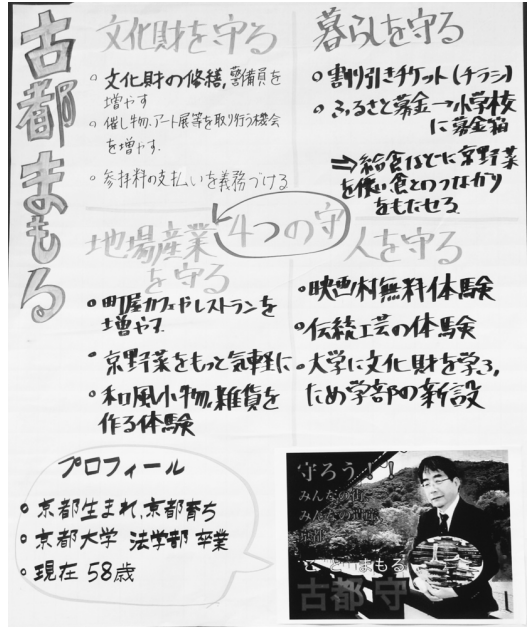 古都まもる
文化財を守る
。文化財の修繕,警備員を
増やす
。催し物,アート展等を取り行う機会
を増やす.
。参拝料の支払いを義務づける
暮らしを守る
。割り引きチケット(チラシ)
。ふるさと募金→小学校
に募金箱
⇒給食などに京野菜
を使い食とのつながり
をもたせる
4つの守
地場産業
を守る
。町屋カフェやレストランを
増やす.
。京野菜をもっと気軽に
。和風小物,雑貨を
作る体験
人を守る
。映画村無料体験
。伝統工芸の体験
。大学に文化財を学ぶ
ため学部の新設
プロフィール
。京都生まれ,京都育ち
。京都大学 法学部 卒業
。現在 58歳
守ろう!!
みんなの
みんなの
京都
まもる
古都 守